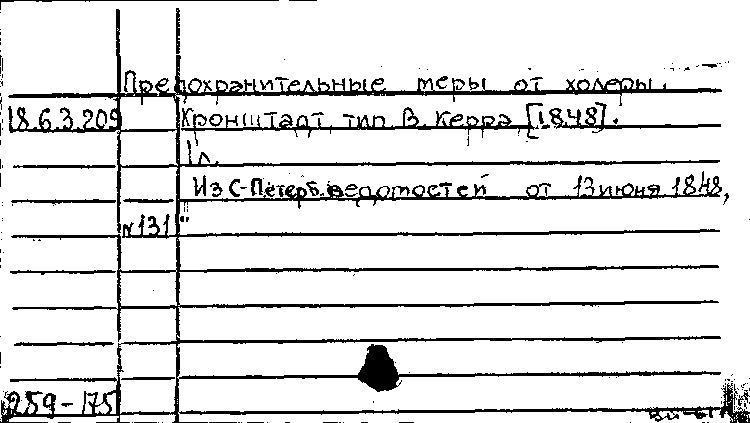 Предохранительные меры от холеры.
18.6.3.209 Кронштадт, тип. В. Керра, [1848].
1 л.
"Из С-Петерб. ведомостей от 13 июня 1848,
№131"
289-175